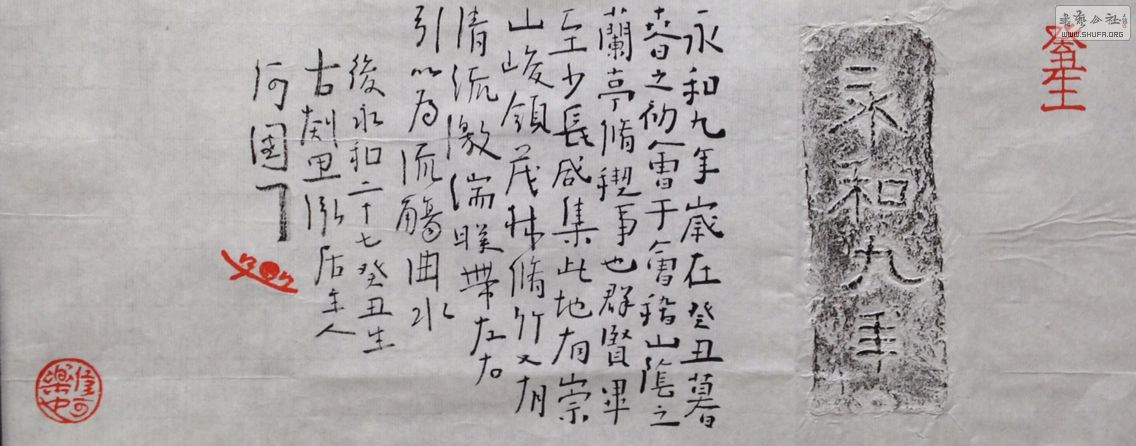 書藝公社
WWW.SHUFA.ORG
癸丑生
永和九年
永和九年歲在癸丑暮
春之初會于會稽山陰之
蘭亭脩禊事也群賢畢
至少長咸集此地有崇
山峻領茂林脩竹又有
清流激湍暎帶左右
引以為流觴曲水
後永和二十七癸丑生
古剡泓居主人
何国